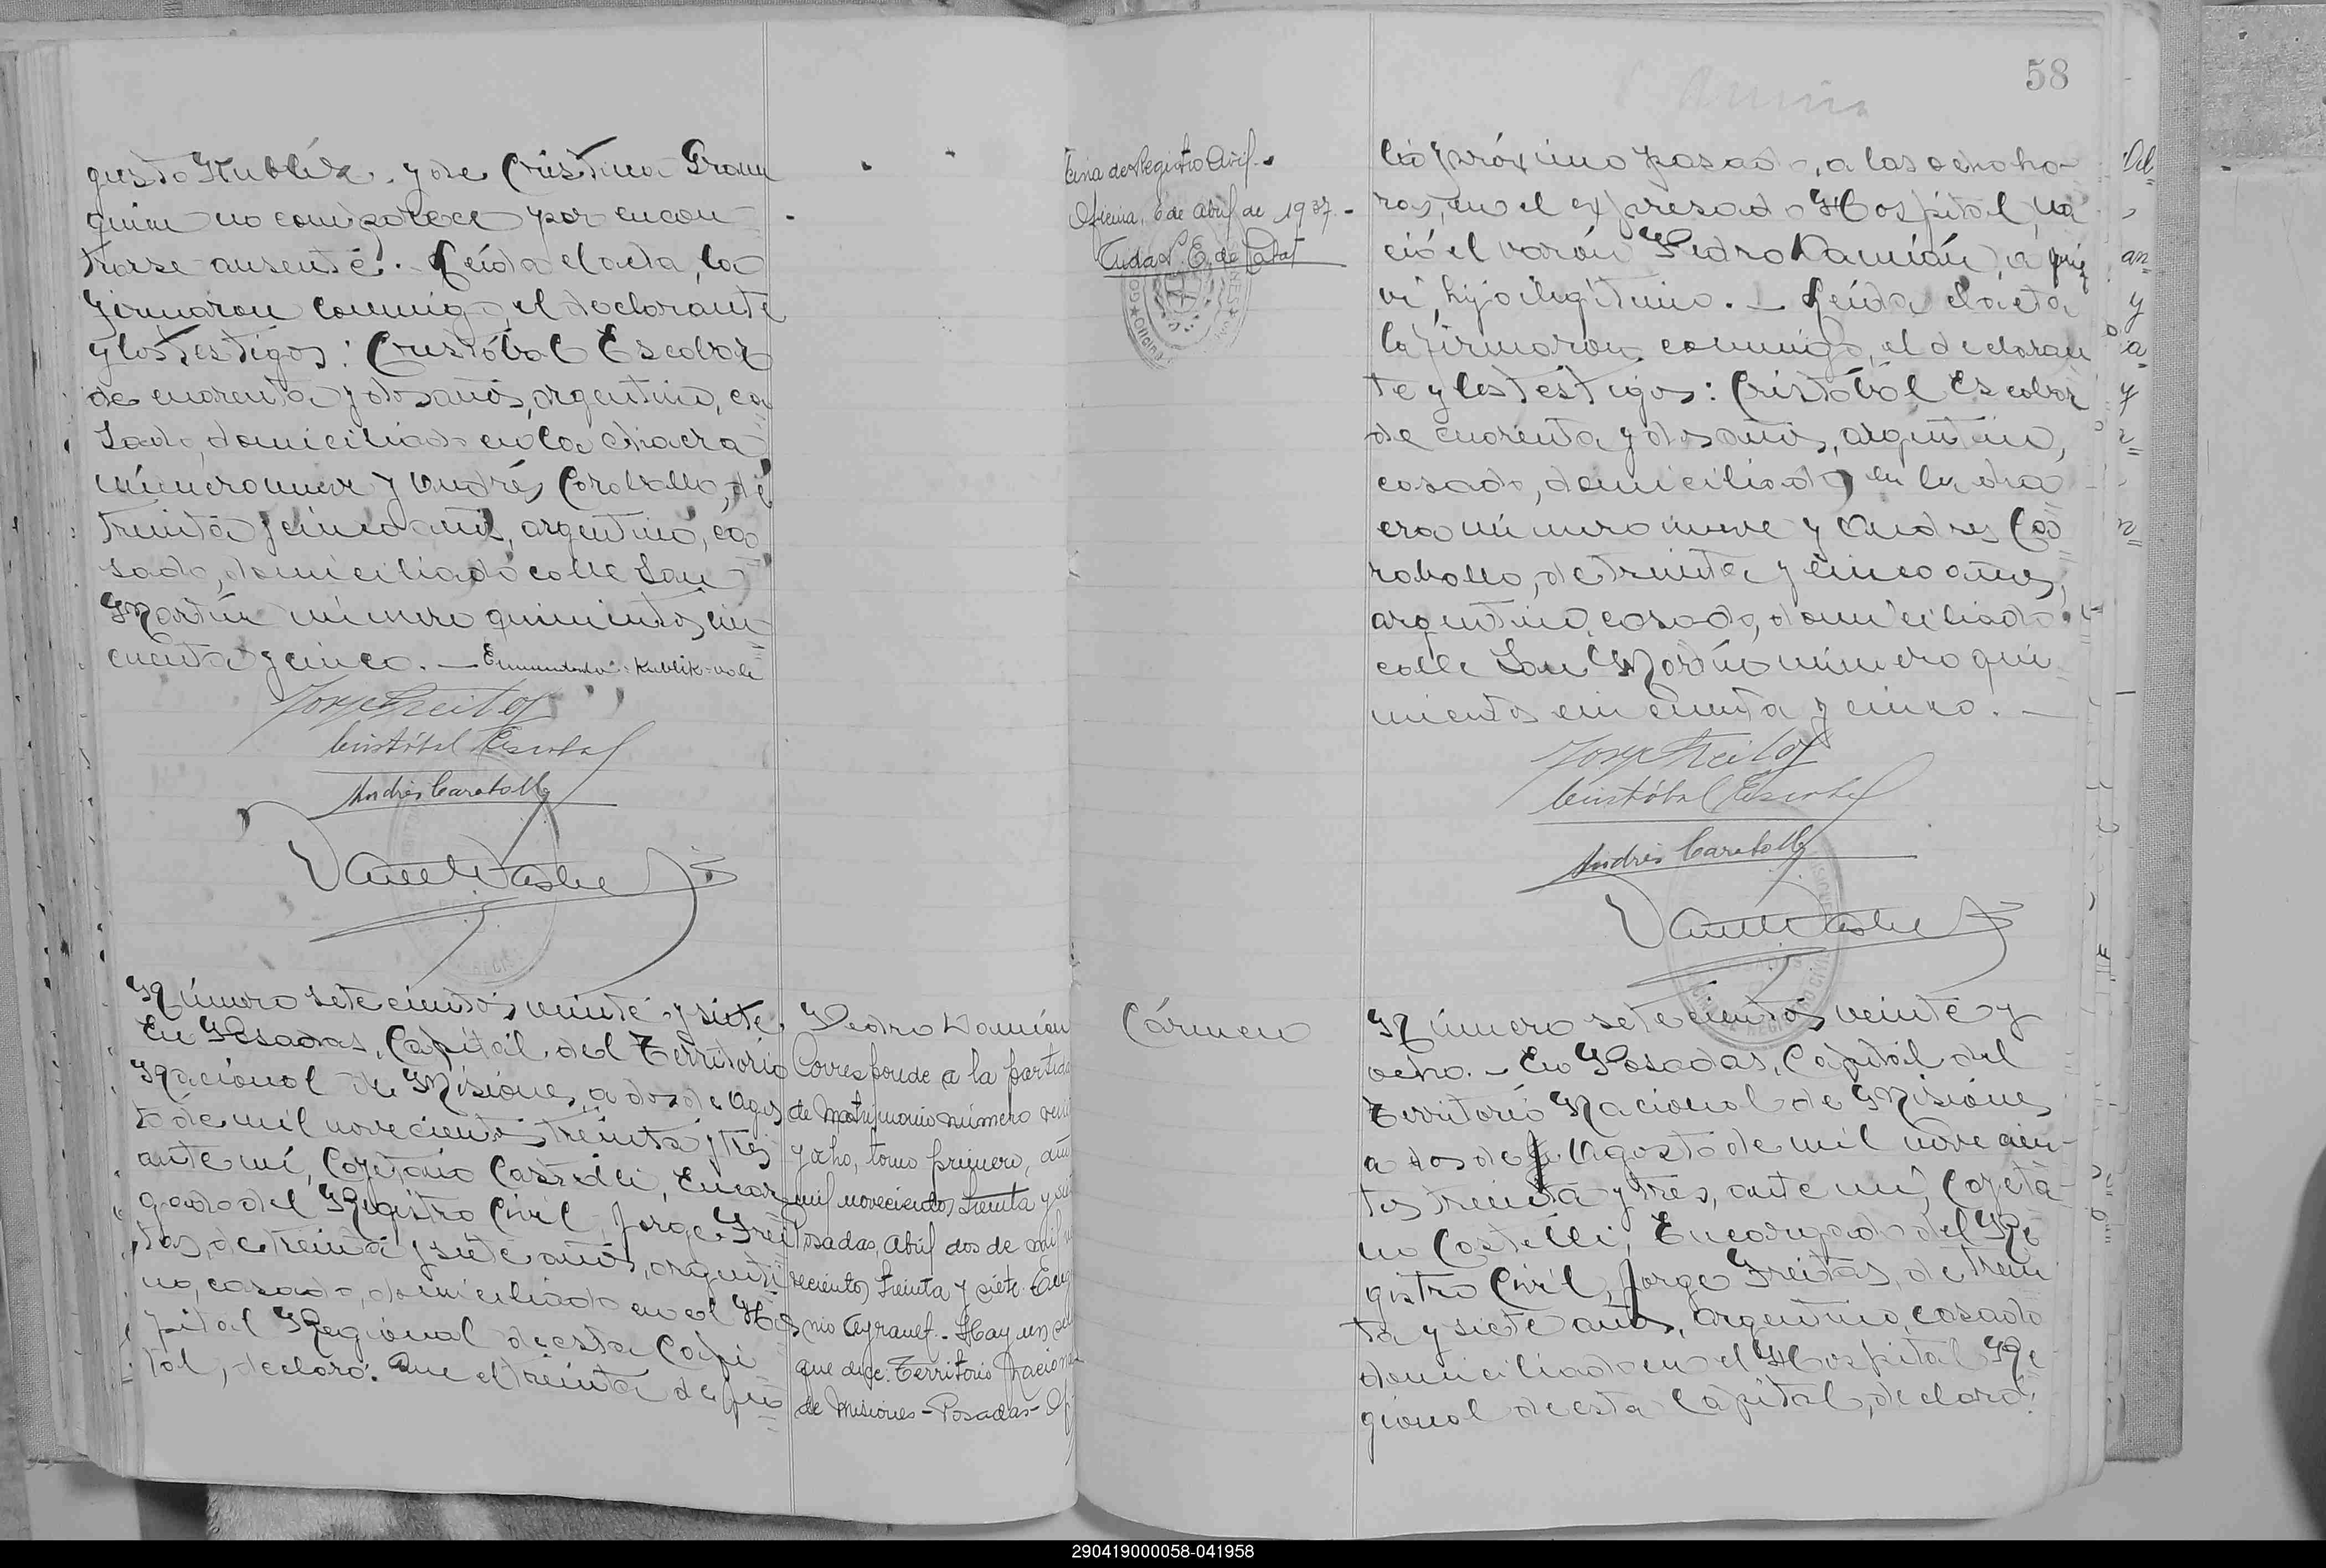 gusto Kublik. y de Cristina
quien no comparece por encon
trarse ausente. Leída el acta, la
firmaron conmigo, el declarante
y los testigos: Cristóbal Escobar
de cuarenta y dos años, argentino, ca
sado, domiciliado en la chacra
número nueve y Andrés Caraballo, de
treinta y cinco años, argentino, ca
sado, domiciliado calle San
Martín número quinientos cin
cuenta y cinco. — Enmendado: Kublik-vale
Jorge Freitas
Cristóbal Escobar
Andrés Caraballo
Número setecientos veinte y siete.
En Posadas, Capital del Territorio
Nacional de Misiones, a dos de Agos
to de mil novecientos treinta y tres
ante mí, Cayetano Castelli, Encar
gado del Registro Civil, Jorge Frei
tas, de treinta y siete años, argenti
no, casado, domiciliado en el Hos
pital Regional de esta Capi
tal, declaró: Que el treinta de ju
Pedro Damián
Corresponde a la partida
de Matrimonio número vein
y ocho, tomo primero, año
mil novecientos treinta y sie
Posadas, Abril dos de mil no
vecientos treinta y siete.
Hay un sel
que dice: Territorio Naciona
de Misiones - Posadas - Of
58
cina de Registro Civil.
Oficina, 6 de Abril de 1937. -
lio próximo pasado, a las ocho ho-
ras, en el expresado Hospital, na
ció el varón Pedro Damián, a quien
vi, hijo ilegítimo. — Leída el acta
la firmaron conmigo, el declaran
te y los testigos: Cristóbal Escobar
de cuarenta y dos años, argentino,
casado, domiciliado en la cha
cra número nueve y Andrés Ca
raballo, de treinta y cinco años,
argentino, casado, domiciliado
calle San Martín número qui
nientos cincuenta y cinco. —
Jorge Freitas
Cristóbal Escobar
Andrés Caraballo
Cármen
Número setecientos veinte y
ocho. - En Posadas, Capital del
Territorio Nacional de Misiones
a dos de Agosto de mil novecien-
tos treinta y tres, ante mí, Cayeta-
no Castelli, Encargado del Re
gistro Civil, Jorge Freitas, de trein
ta y siete años, argentino, casado
domiciliado en el Hospital Re
gional de esta Capital, declaró:
290419000058-041958